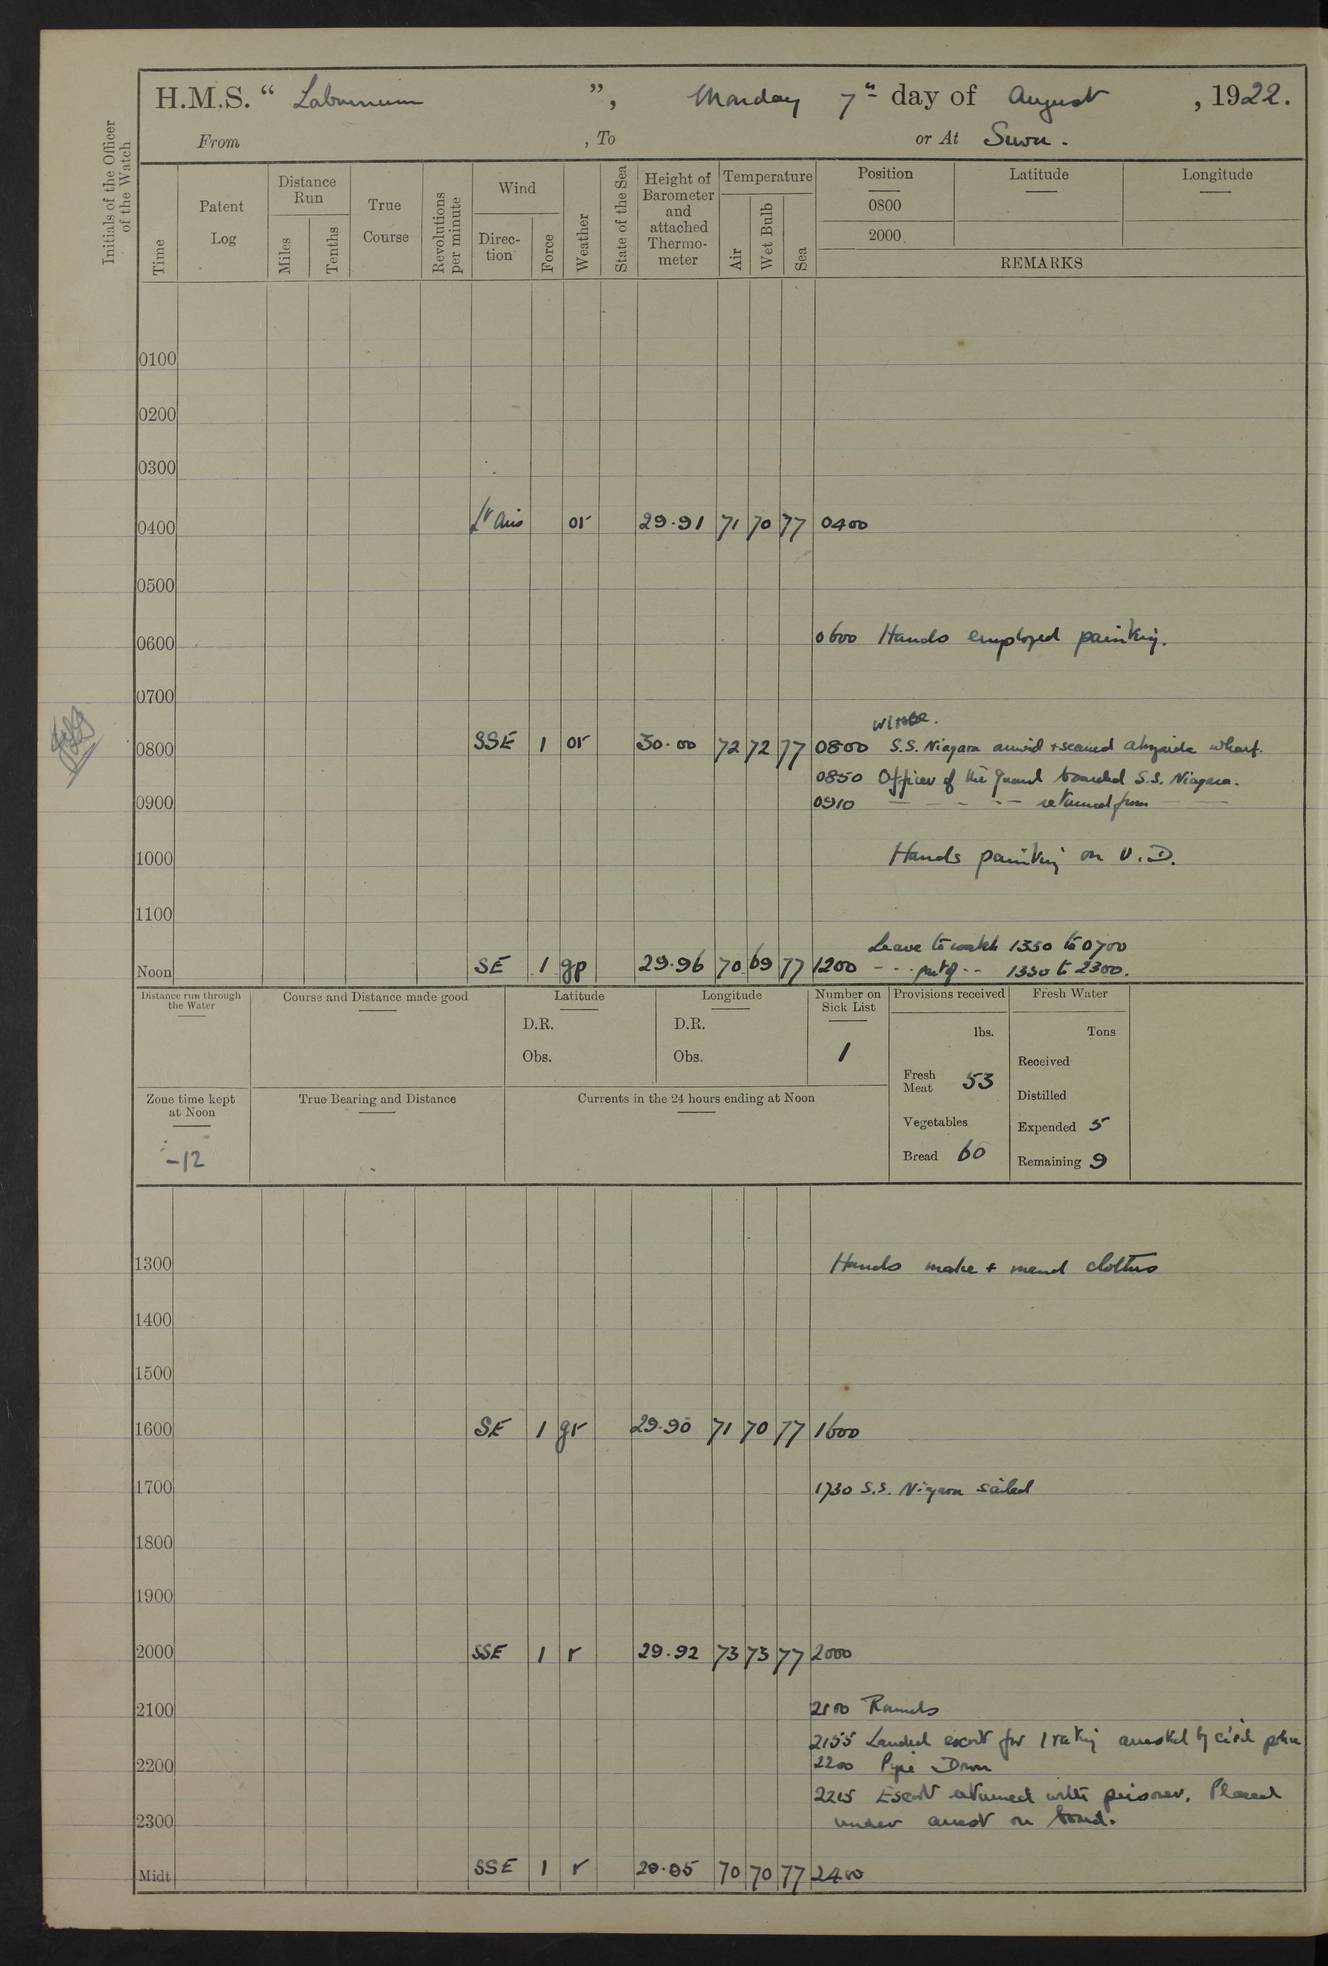 H.M.S. “ Laburnum ”, Monday 7th day of August , 1922.
From , To or At Suva.
Initials of the Officer of the Watch
Time
Patent Log
Distance Run
Miles
Tenths
True Course
Revolutions per minute
Wind
Direc-tion
Force
Weather
State of the Sea
Height of Barometer and attached Thermo-meter
Temperature
Air
Wet Bulb
Sea
Position
0800
2000
Latitude
Longitude
REMARKS
0100
0200
0300
0400 Lt Airs or 29.91 71 70 77 0400
0500
0600 0600 Hands employed painting.
0700
0800 SSE 1 or 30.00 72 72 77 0800 S.S. Niagara arrived & secured alongside wharf.
0850 Officer of the Guard boarded S.S. Niagara.
0900 0910 — — — — returned from — —
1000 Hands painting on U.D.
1100
Leave to watch 1330 to 0700
Noon SE 1 gp 29.96 70 69 77 1200 - - - part of - - 1330 to 2300.
Distance run through the Water
Course and Distance made good
Latitude
D.R.
Obs.
Longitude
D.R.
Obs.
Number on Sick List
1
Provisions received
lbs.
Fresh Meat 53
Vegetables
Bread 60
Fresh Water
Tons
Received
Distilled
Expended 5
Remaining 9
Zone time kept at Noon
-12
True Bearing and Distance
Currents in the 24 hours ending at Noon
1300 Hands make & mend clothes
1400
1500
1600 SE 1 gr 29.90 71 70 77 1600
1700 1730 S.S. Niagara sailed
1800
1900
2000 SSE 1 r 29.92 73 73 77 2000
2100 2100 Rounds
2155 Landed escort for 1 rating arrested by civil police
2200 2200 Pipe Down
2215 Escort returned with prisoner. Placed
2300 under arrest on board.
Midt SSE 1 r 29.95 70 70 77 2400